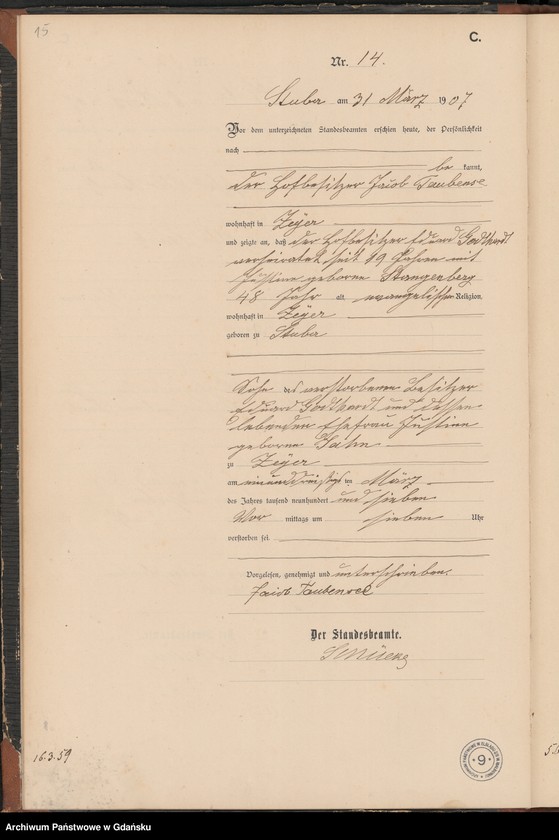 15
C.
Nr. 14.
Stuba am 31 März 1907
Vor dem unterzeichneten Standesbeamten erschien heute, der Persönlichkeit
nach
be kannt,
der Hofbesitzer Jacob Taubensee
wohnhaft in Zeyer
und zeigte an, daß der Hofbesitzer Eduard Godthardt
verheiratet seit 19 Jahren mit
Justine geborene Stangenberg
48 Jahr alt, evangelischer Religion,
wohnhaft in Zeyer
geboren zu Stuba
Sohn des verstorbenen Besitzer
Eduard Godthardt und dessen
lebenden Ehefrau Justine
geborene Jahn
zu Zeyer
am einunddreißigsten März
des Jahres tausend neunhundert und sieben
Vor mittags um sieben Uhr
verstorben sei.
Vorgelesen, genehmigt und unterschrieben.
Jacob Taubensee
Der Standesbeamte.
16.3.59
9
Archiwum Państwowe w Gdańsku